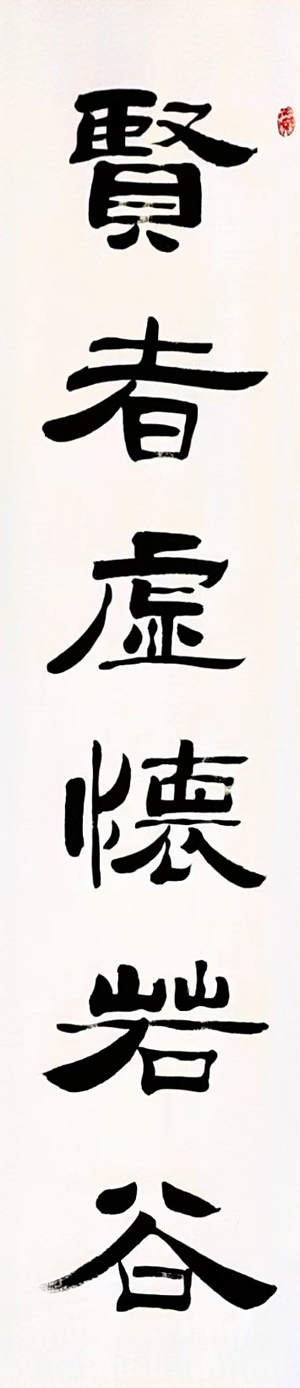 賢者虛懷若谷